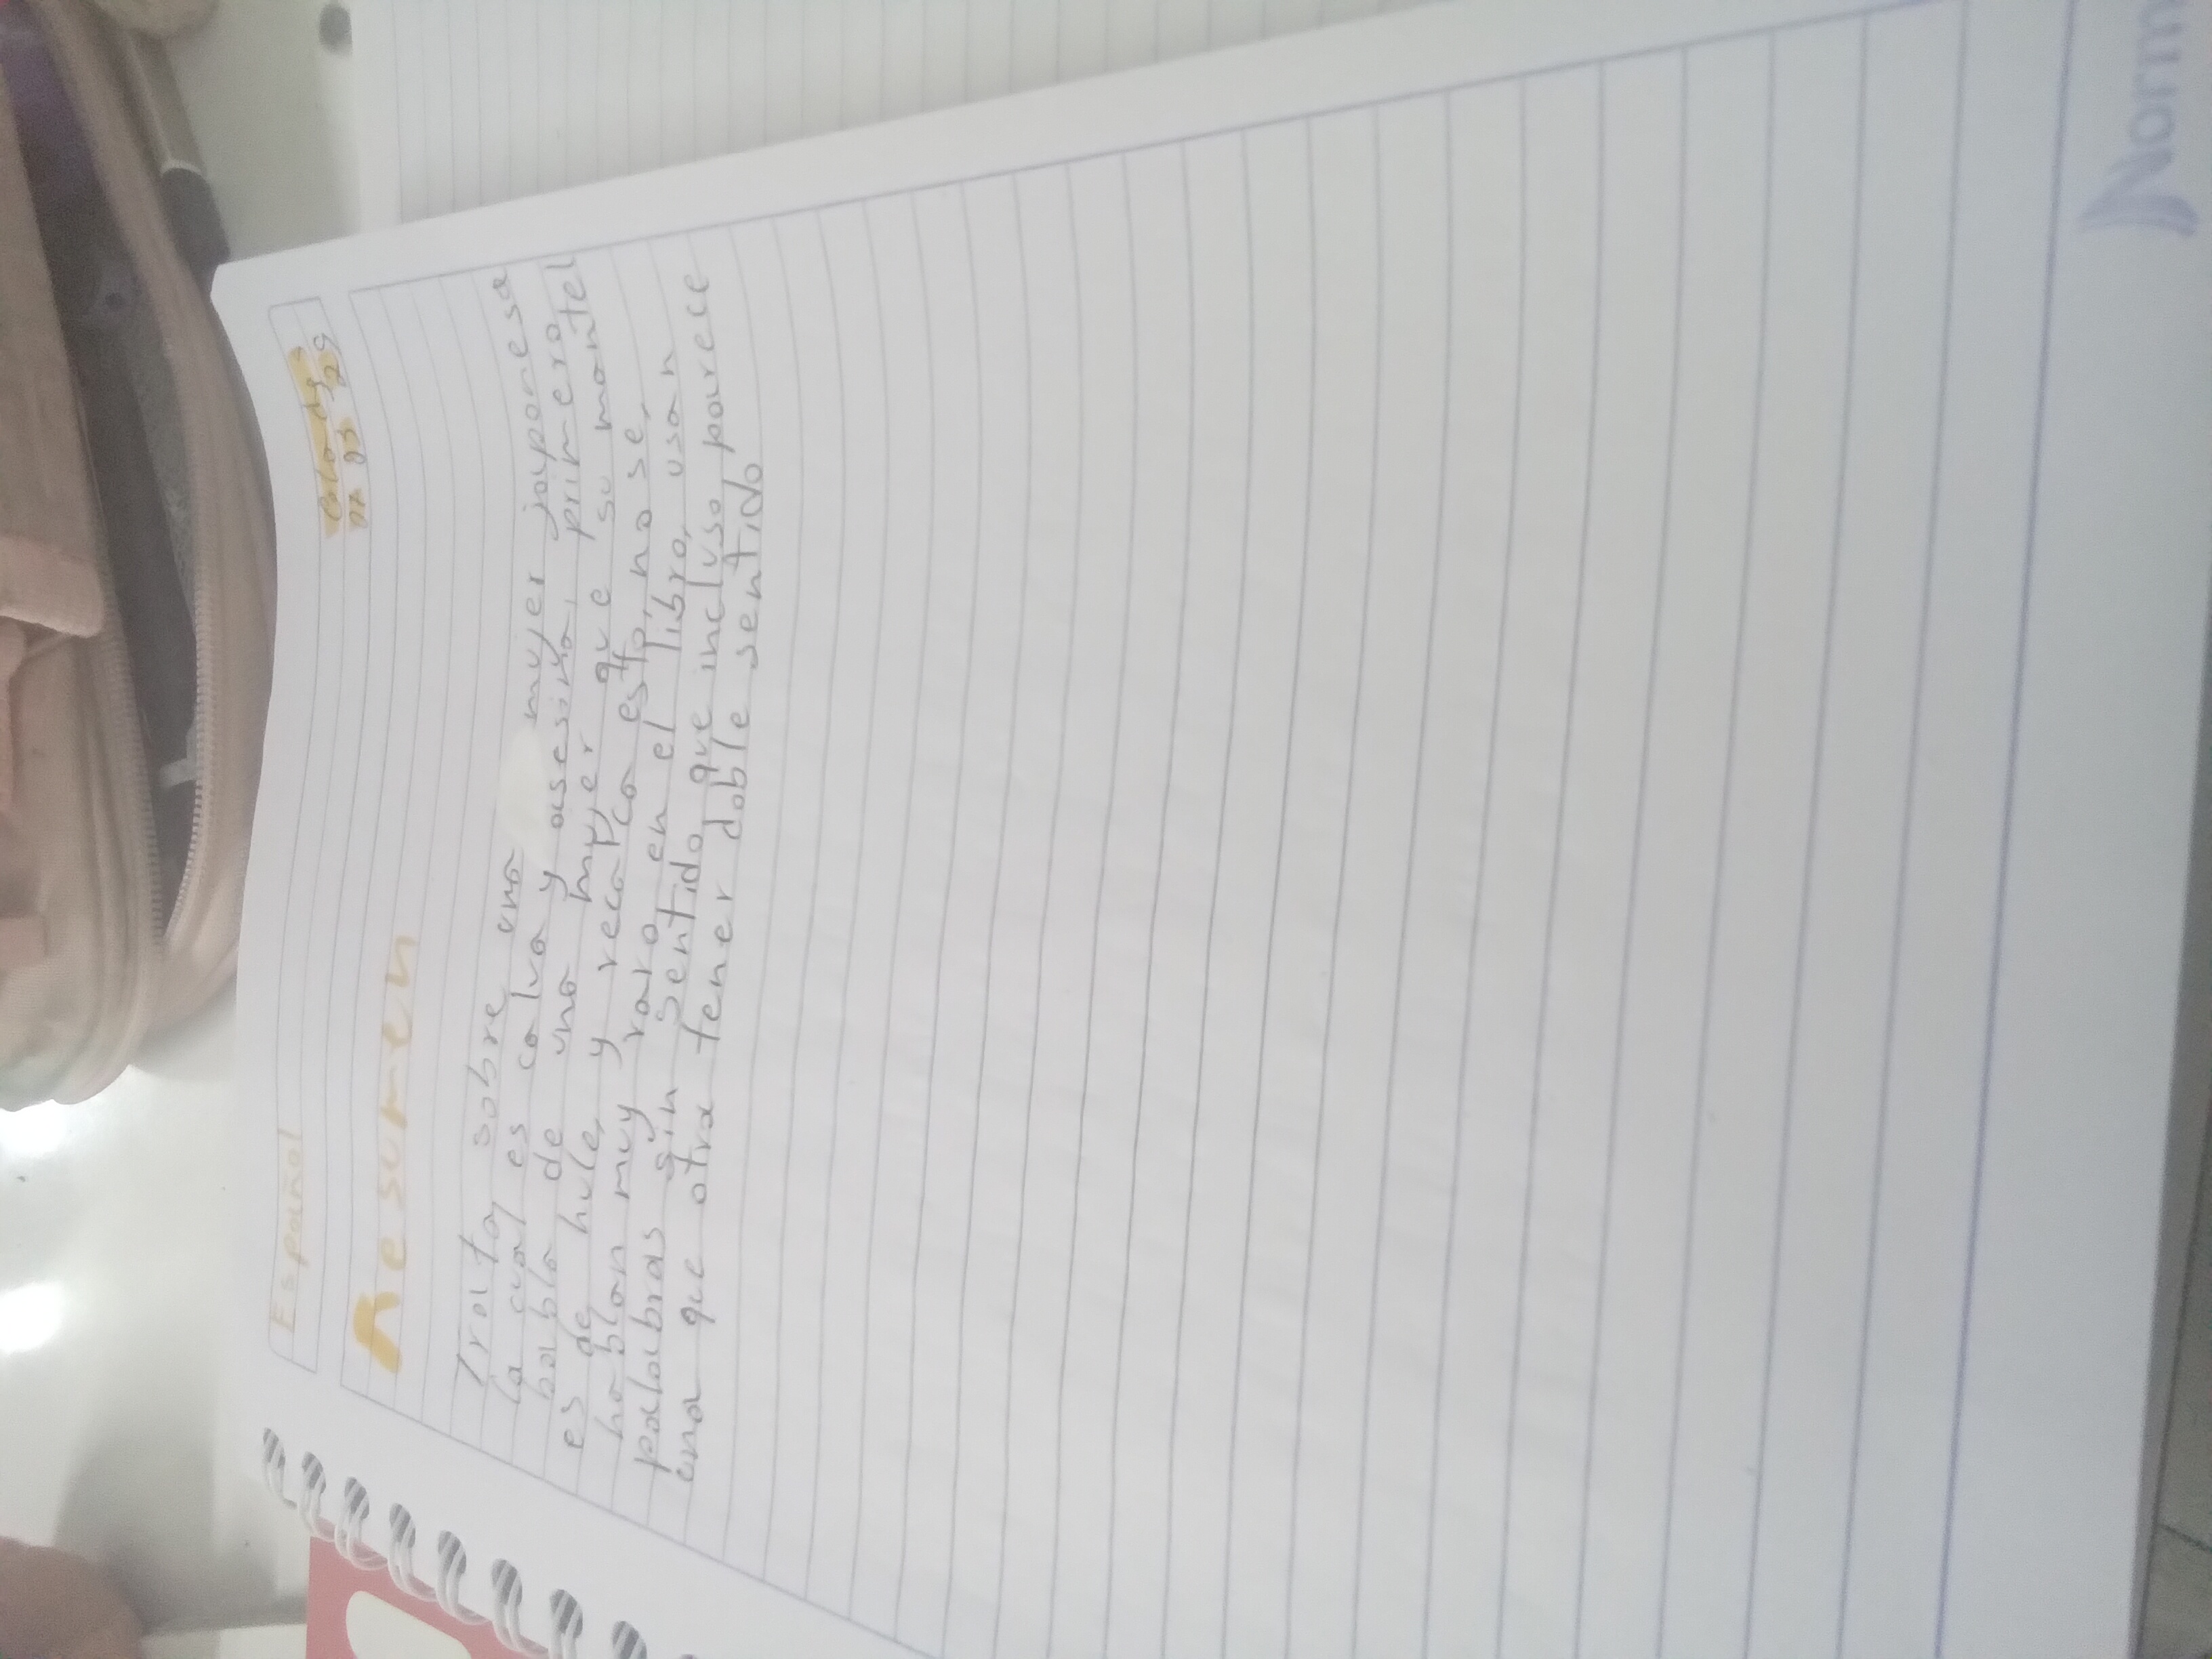 Español
Resumen
Trata sobre una mujer japonesa
la cual es calva y asesina, primero
habla de una mujer que su mantel
es de hule, y recalco esto, no se,
hablan muy raro en el libro, usan
palabras sin sentido que incluso parece
una que otra tener doble sentido
Norm